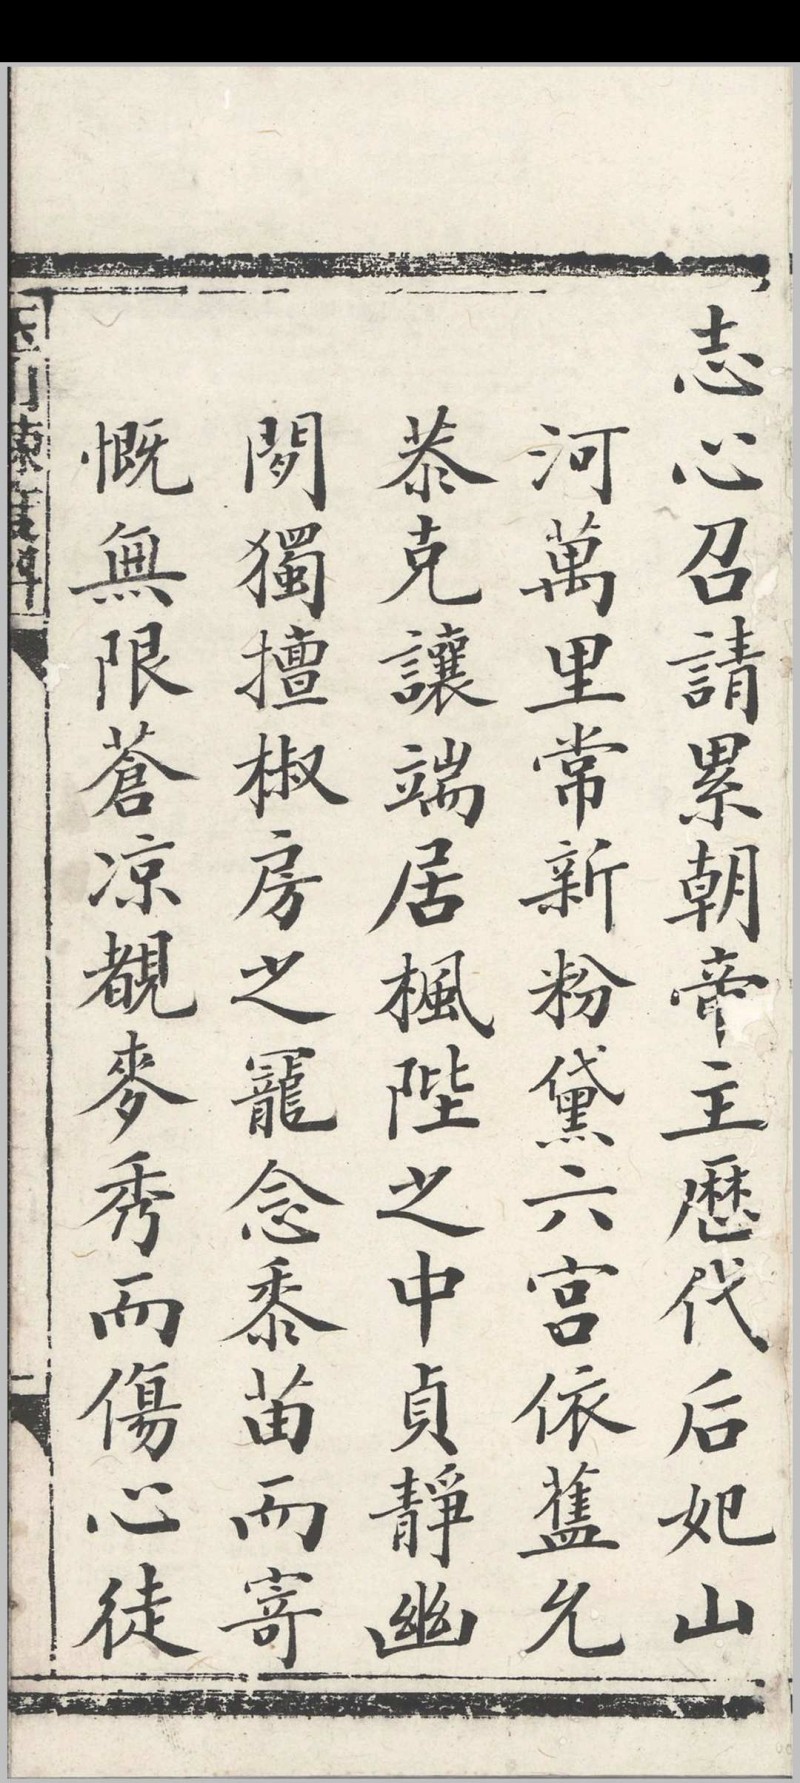 志心召請累朝帝主歷代后妃山
河萬里常新粉黛六宮依舊允
恭克讓端居楓陛之中貞靜幽
閒獨擅椒房之寵念黍苗而寄
慨無限蒼凉覩麥秀而傷心徒